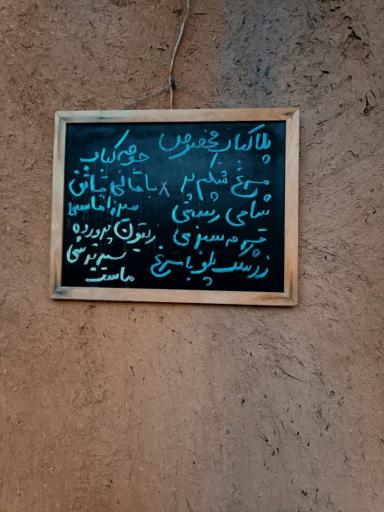 پلاکباب مخصوص
مرغ شکم پر
شامی رشتی
قرمه سبزی
زرشک پلو با مرغ
جوجه کباب
باقالی قاتق x
میرزا قاسمی
زیتون پرورده
سیر ترشی
ماست